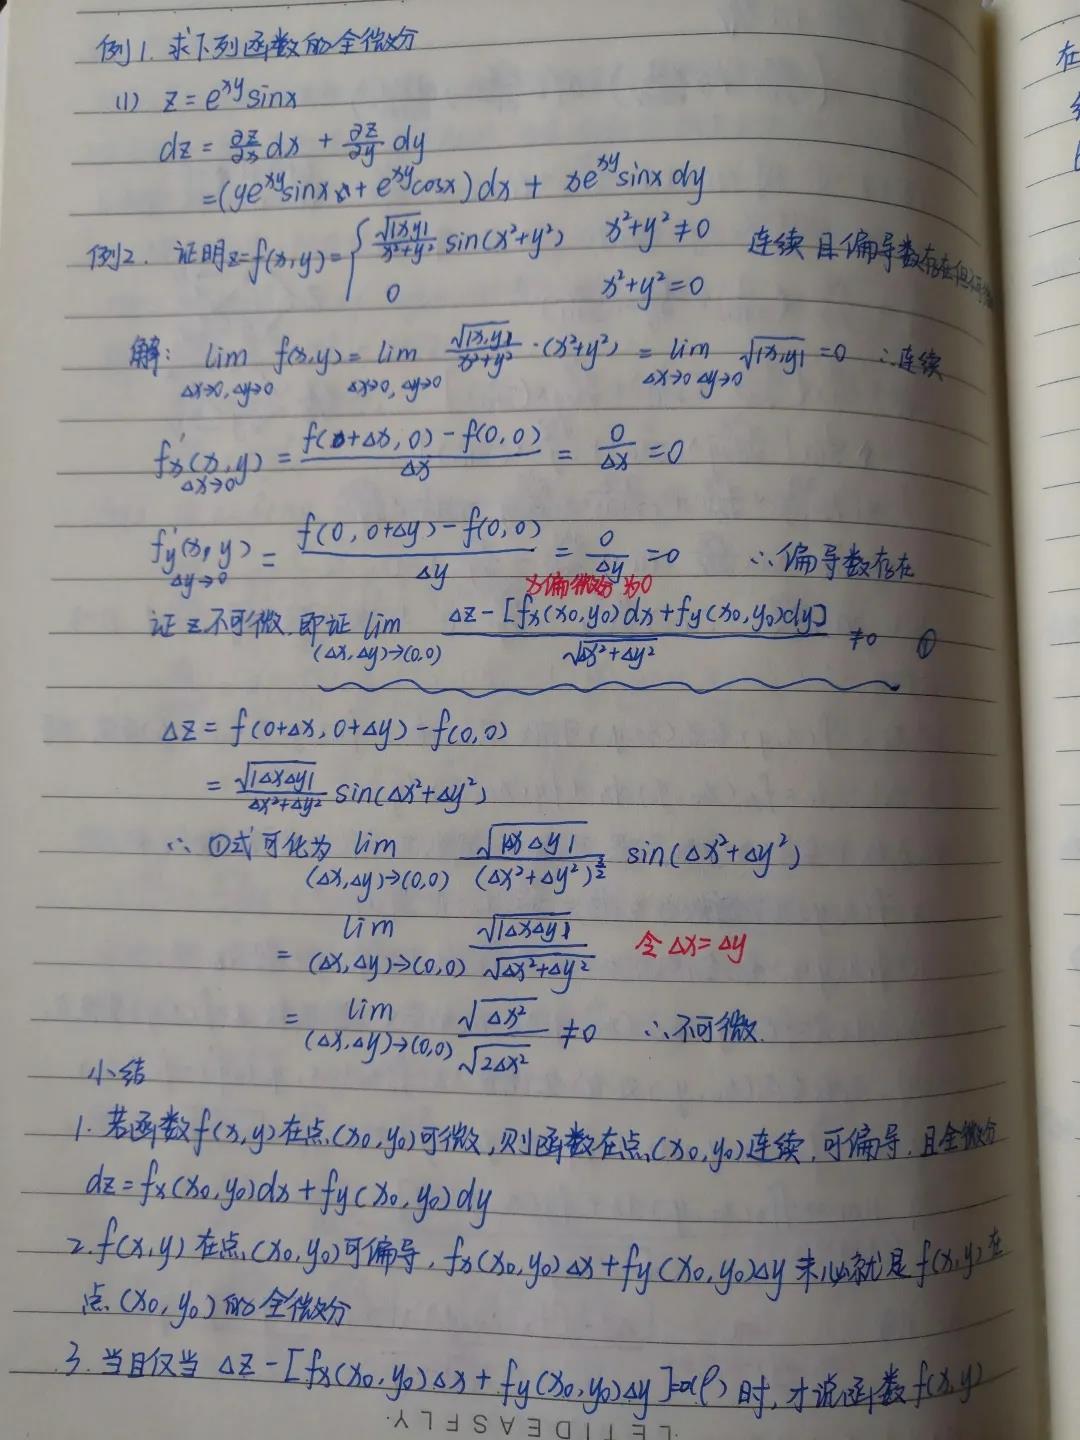 例1. 求下列函数的全微分
(1) z = e^{xy} sinx
dz = ∂z/∂x dx + ∂z/∂y dy
= (ye^{xy}sinx + e^{xy}cosx) dx + xe^{xy}sinx dy
例2. 证明z=f(x,y)= { √|xy|/(x²+y²) sin(x²+y²) x²+y²≠0 连续且偏导数存在但不可微
0 x²+y²=0
解: lim_{Δx→0, Δy→0} f(x,y) = lim_{Δx→0, Δy→0} √|x,y|/(x²+y²) ·(x²+y²) = lim_{Δx→0 Δy→0} √|x,y| = 0 ∴连续
fx'(x,y)_{Δx→0} = (f(0+Δx, 0) - f(0,0))/Δx = 0/Δx = 0
fy'(x,y)_{Δy→0} = (f(0, 0+Δy) - f(0,0))/Δy = 0/Δy = 0 ∴偏导数存在
偏微分为0
证z不可微.即证 lim_{(Δx,Δy)→(0,0)} (Δz - [fx(x0,y0)dx + fy(x0,y0)dy])/√(Δx²+Δy²) ≠0 ①
Δz = f(0+Δx, 0+Δy) - f(0,0)
= √|ΔxΔy|/(Δx²+Δy²) sin(Δx²+Δy²)
∴ ①式可化为 lim_{(Δx,Δy)→(0,0)} √|ΔxΔy|/(Δx²+Δy²)^{3/2} sin(Δx²+Δy²)
= lim_{(Δx,Δy)→(0,0)} √|ΔxΔy|/√(Δx²+Δy²) 令Δx=Δy
= lim_{(Δx,Δy)→(0,0)} √(Δx²)/√(2Δx²) ≠0 ∴不可微.
小结
1. 若函数f(x,y)在点(x0,y0)可微,则函数在点(x0,y0)连续,可偏导,且全微分
dz = fx(x0,y0)dx + fy(x0,y0)dy
2. f(x,y)在点(x0,y0)可偏导, fx(x0,y0)Δx + fy(x0,y0)Δy 未必就是f(x,y)在
点(x0,y0)的全微分
3. 当且仅当 Δz - [fx(x0,y0)Δx + fy(x0,y0)Δy] = o(ρ)时,才说函数f(x,y)
LETIDEASFLY
在